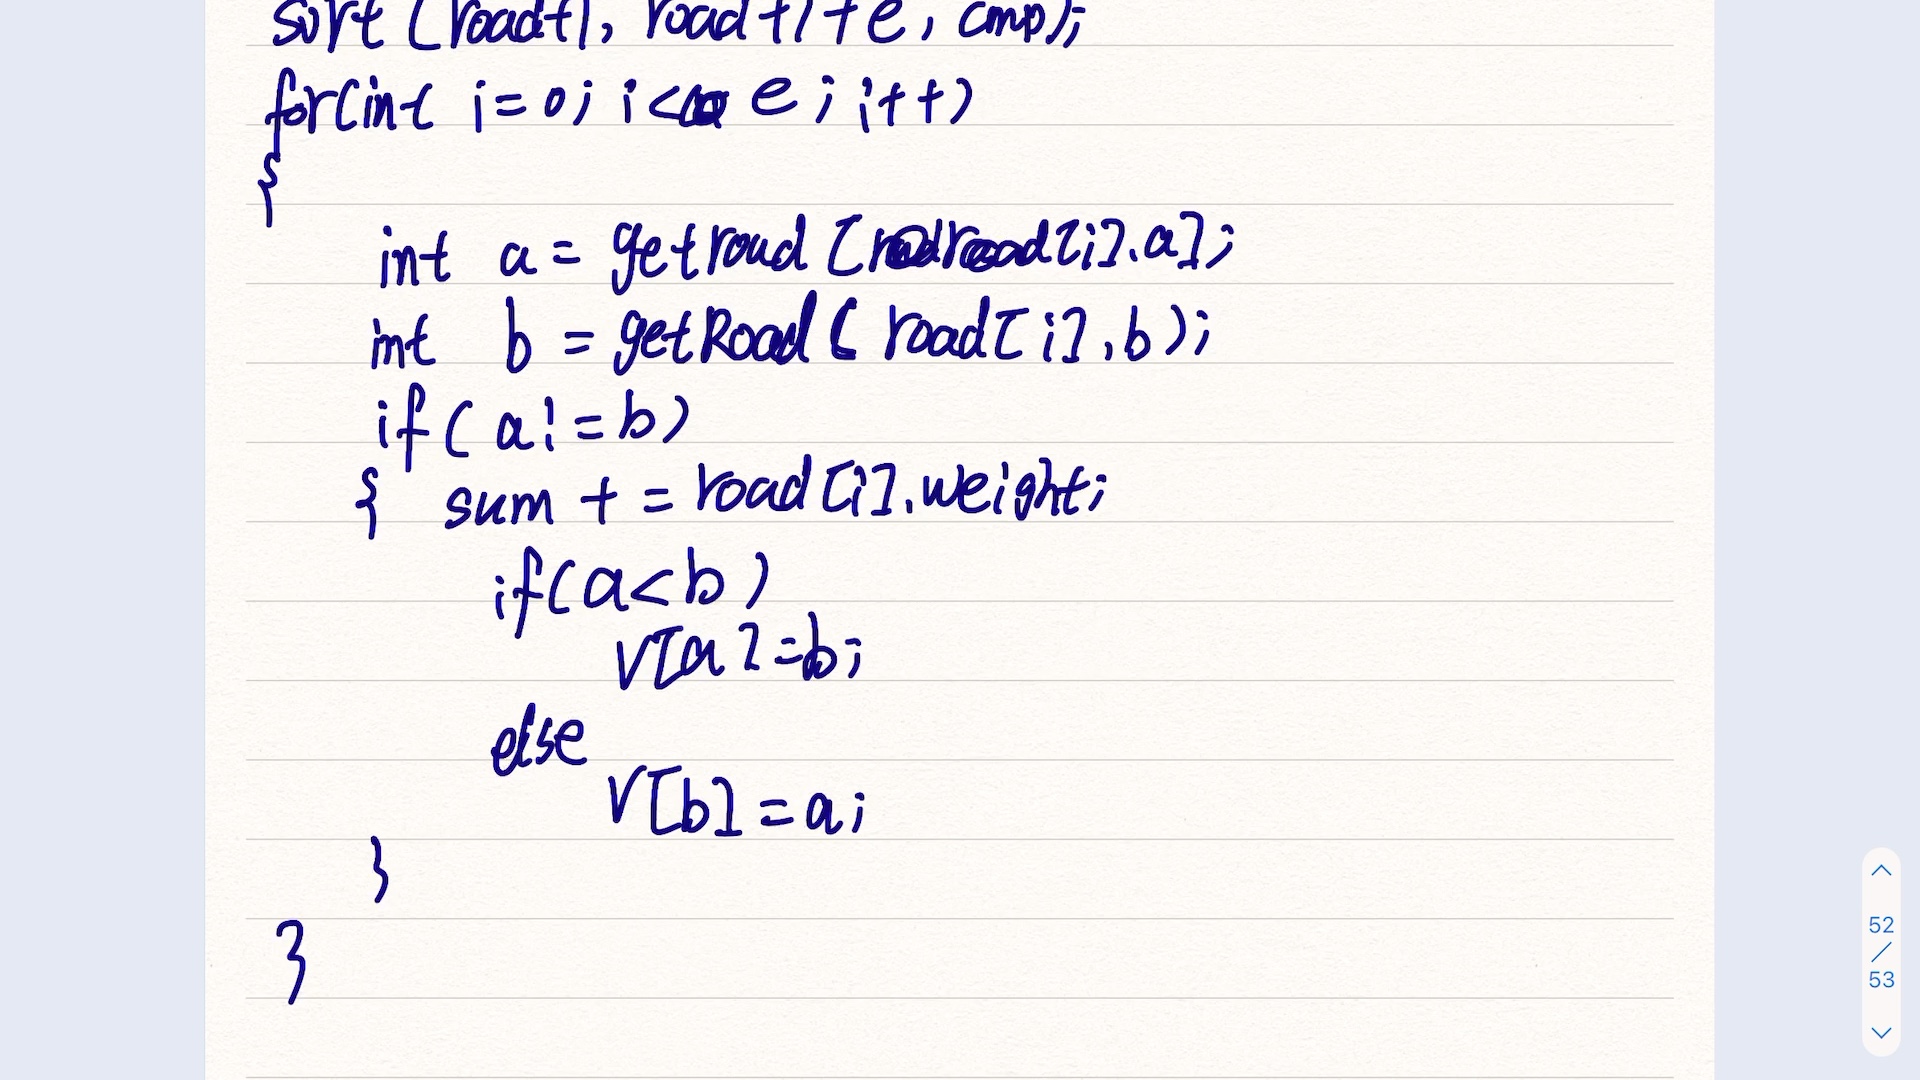 sort (road+1, road+1+e, cmp);
for(int i=0; i< e; i++)
{
int a = getroad [road[i].a];
int b = getRoad( road[i].b);
if( a!=b)
{ sum += road[i].weight;
if(a<b)
V[a]=b;
else
V[b]=a;
}
}
52
/
53